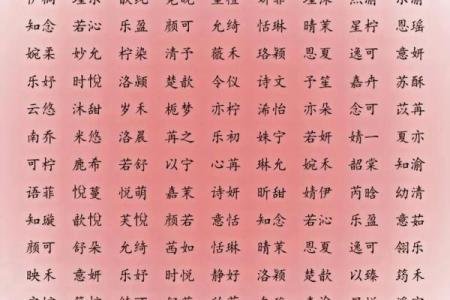 知念 若沁 乐盈 颜可 允绮 恬琳 晴茉 星柠 恩瑶
婉柔 妙允 柠染 清予 薇禾 珞颖 恩夏 逸可 意妍
乐妤 时悦 洛颖 楚歆 令仪 诗文 予笙 嘉卉 苏酥
云悠 沐甜 岁禾 栀梦 亦柠 浠怡 亦朵 念可 苡苒
南乔 米悠 洛晨 苒之 乐初 姝宁 若妍 婧一 夏亦
可柠 鹿希 若舒 以宁 心苒 琳允 婉禾 韶棠 知渝
语菲 悦蔓 悦萌 嘉茉 诗妍 昕甜 婧伊 芮晗 幼清
知璇 歆悦 芙悦 颜若 意恬 知念 若沁 乐盈 意茹
颜可 舒朵 允绮 茜如 恬琳 晴茉 恩夏 逸可 翎乐
映禾 意妍 乐妤 时悦 静妤 洛颖 楚歆 以臻 筠禾